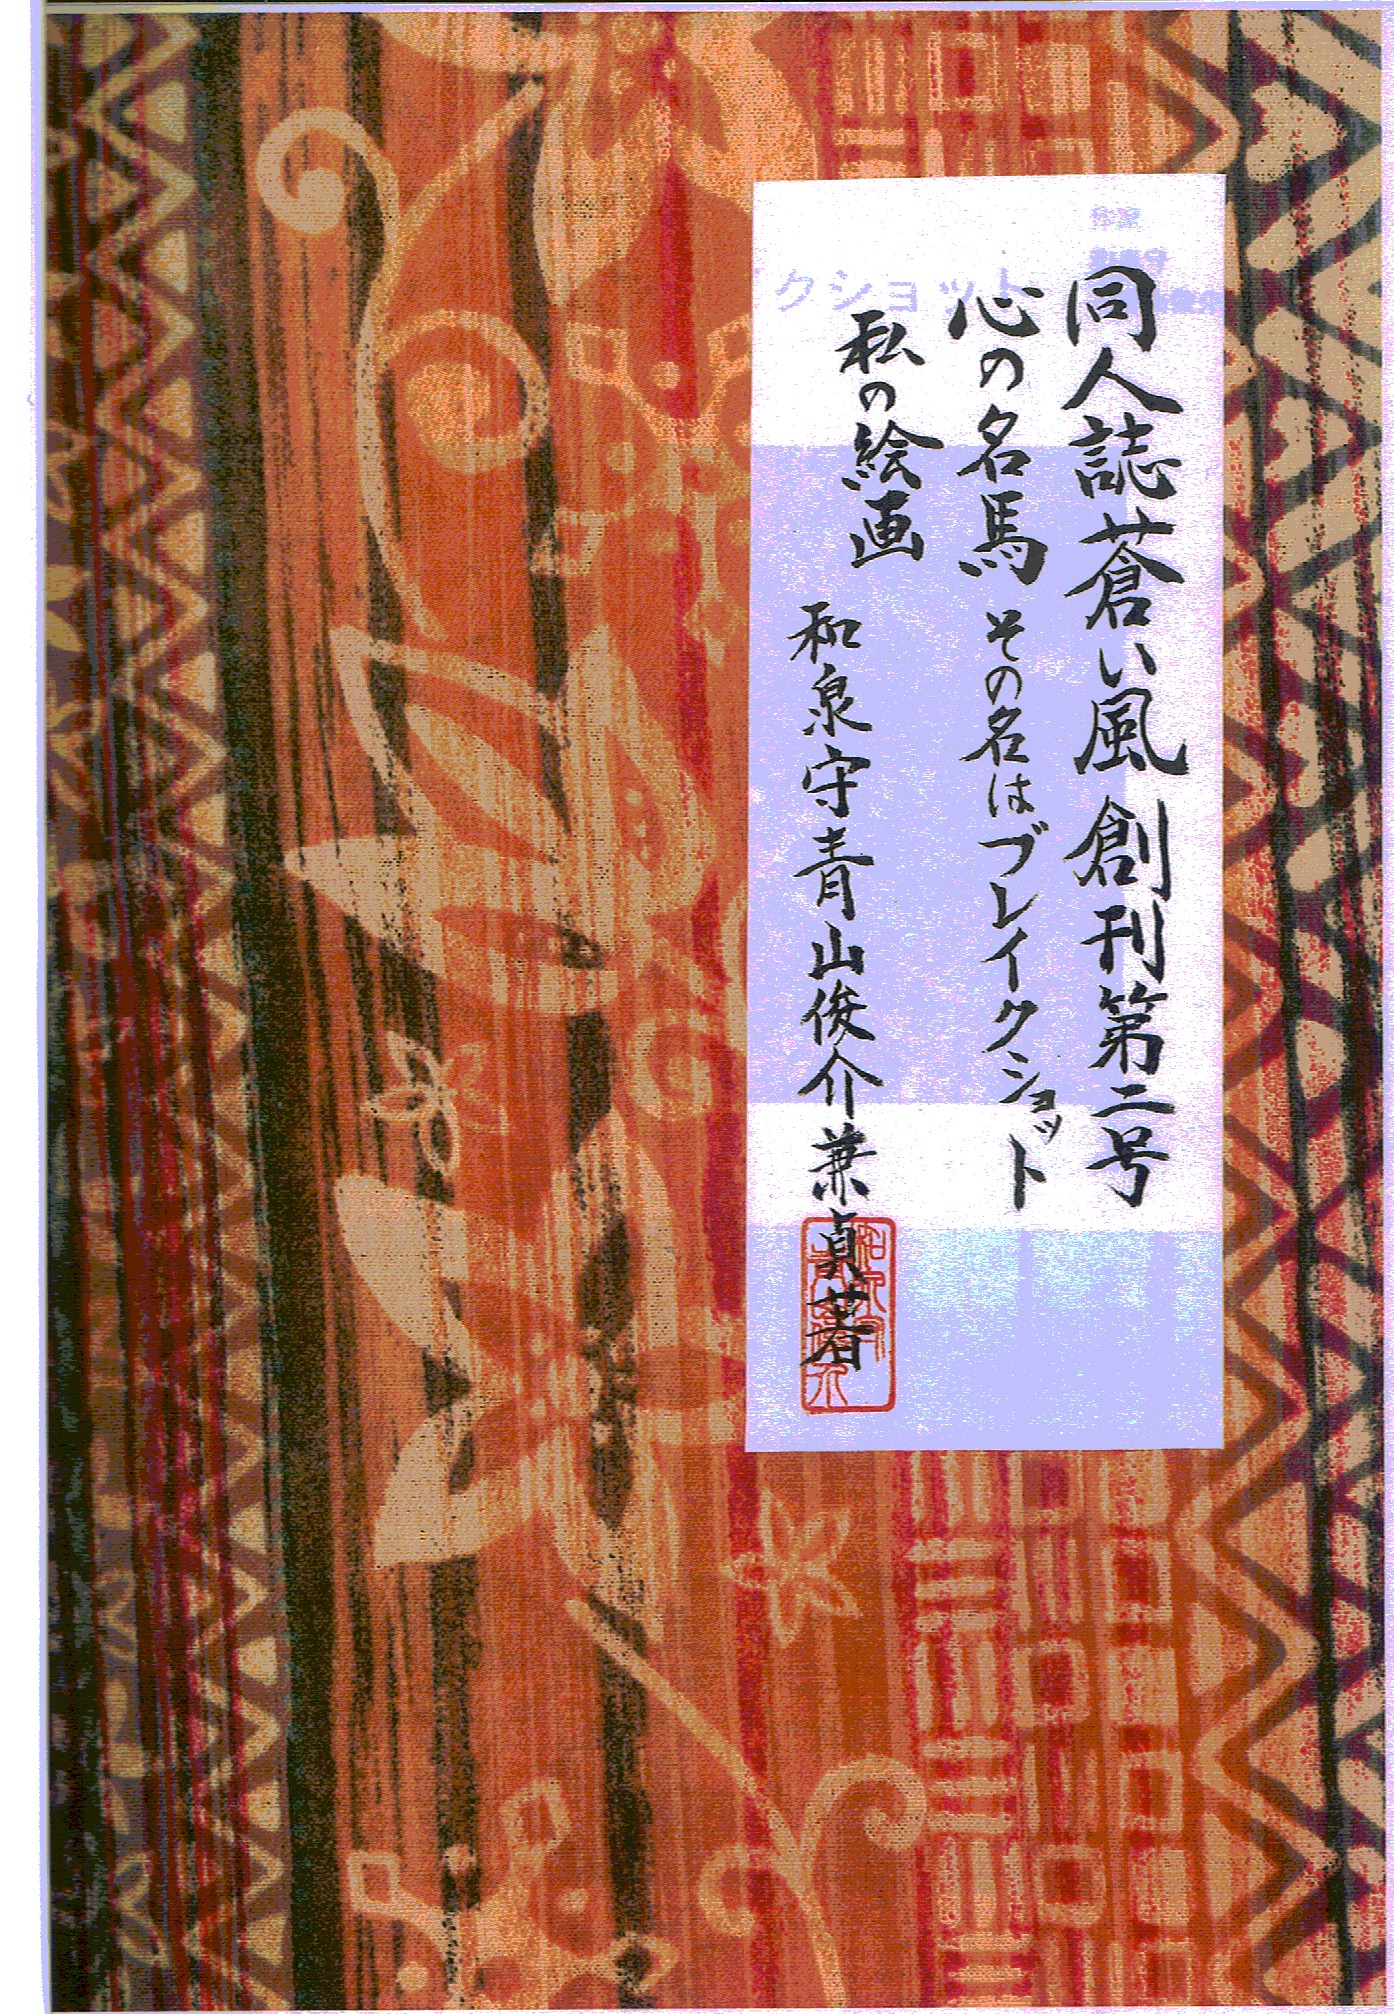 同人誌蒼い風 創刊第二号
心の名馬 その名はブレイクショット
私の絵画
和泉守青山俊介兼貞著
クショット